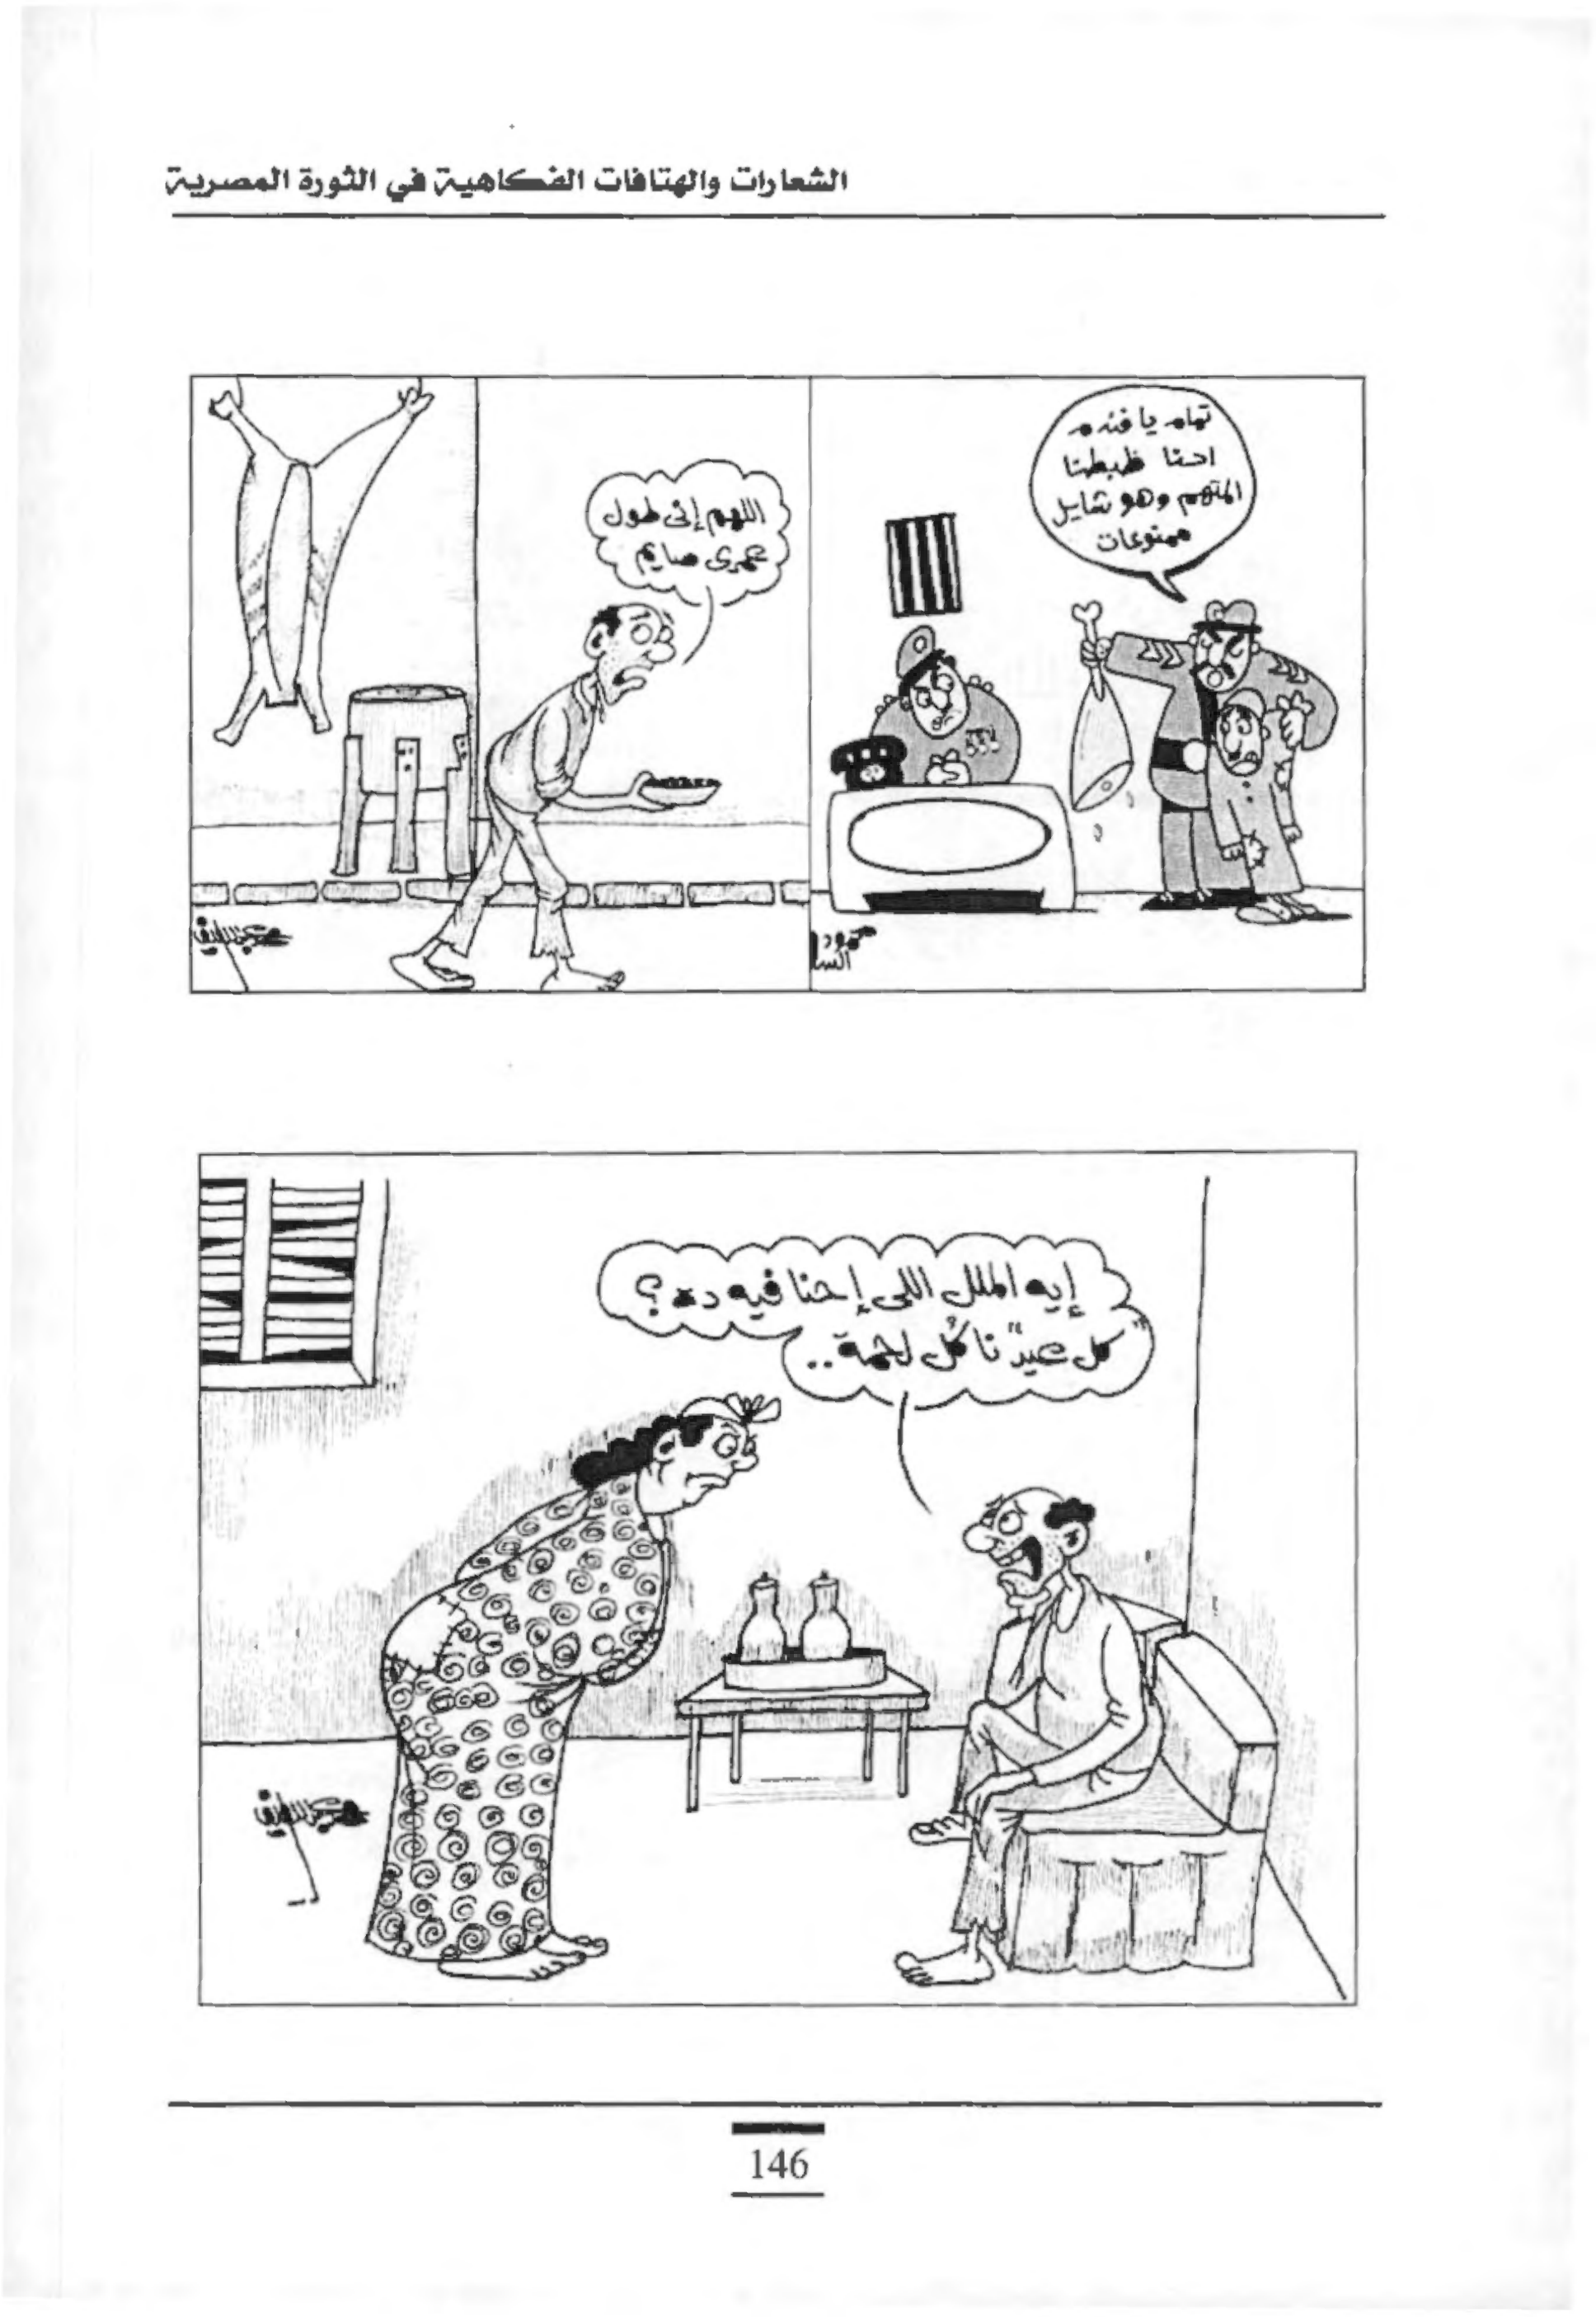 الشعارات والهتافات الفكاهية في الثورة المصرية
تمام يا فندم
احنا ظبطنا
المتهم وهو شايل
ممنوعات
اللهم إنى طول
عمرى صايم
إيه الملل اللى إحنا فيه ده؟
كل "عيد" نا كُل لحمة..
146